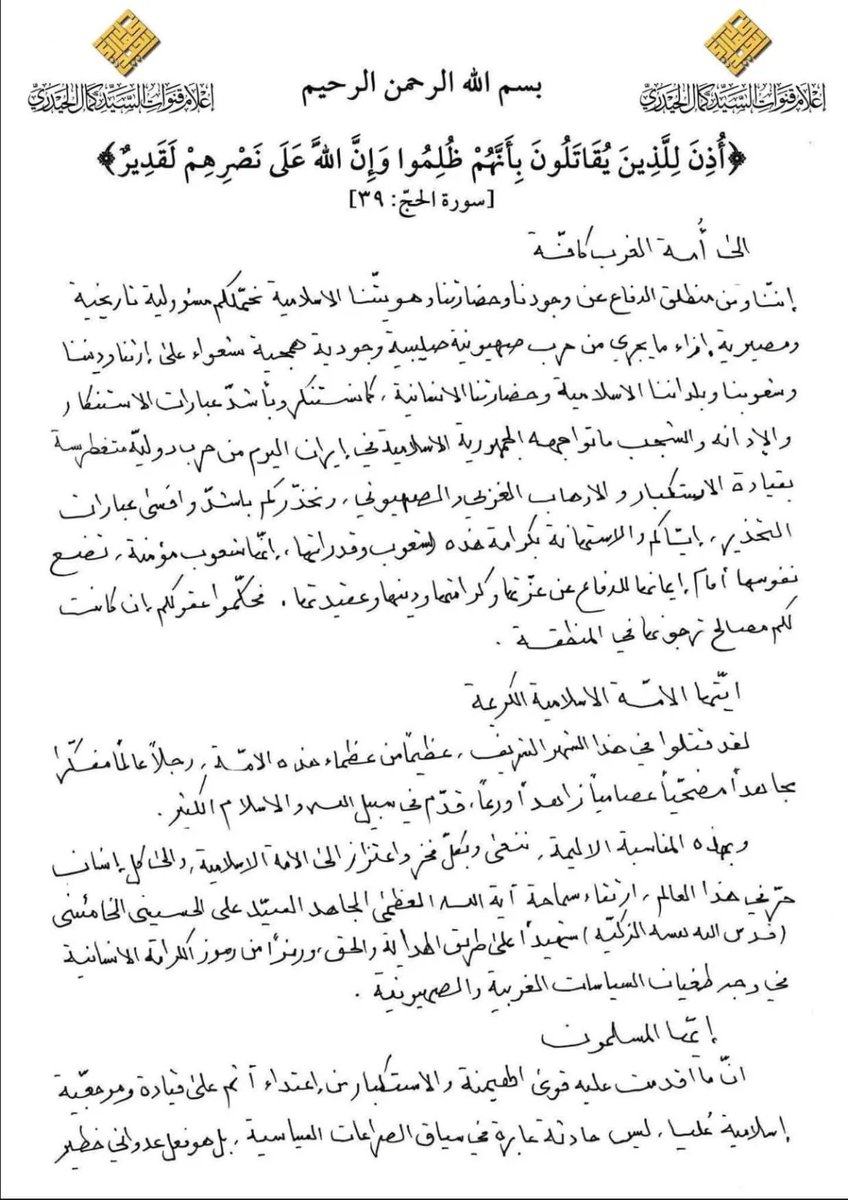 إعلام قنوات السيد كمال الحيدري
إعلام قنوات السيد كمال الحيدري
بسم الله الرحمن الرحيم
﴿أُذِنَ لِلَّذِينَ يُقَاتَلُونَ بِأَنَّهُمْ ظُلِمُوا وَإِنَّ اللهَّ عَلَى نَصْرِهِمْ لَقَدِيرٌ﴾
[سورة الحجّ: ٣٩]
الى أُمة الغرب كافّة
إننّا ومن منطلق الدفاع عن وجودنا وحضارتنا وهويتّنا الاسلامية نحمّلكم مسؤولية تاريخية
ومصيرية إزاء ما يجري من حرب صهيونية صليبية وجودية همجية شعواء على إرثنا وديننا
وشعوبنا وبلداننا الاسلامية وحضارتنا الانسانية، كما نستنكر وبأشدّ عبارات الاستنكار
والإدانه والشجب ما تواجهه الجمهورية الاسلامية في إيران اليوم من حرب دوليّة متغطرسة
بقيادة الاستكبار والارهاب الغربي والصهيوني، ونحذّركم باشدّ واقسى عبارات
التحذير، إيّاكم والاستهانة بكرامة هذه الشعوب وقدراتها، إنّها شعوب مؤمنة، تضع
نفوسها أمام إيمانها للدفاع عن عزّتها وكرامتها ودينها وعقيدتها، فحكّموا عقولكم إن كانت
لكم مصالح ترجونها في المنطقة.
ايّتها الامّة الاسلامية الكريمة
لقد قتلوا في هذا الشهر الشريف، عظيماً من عظماء هذه الامّة، رجلاً عالماً مفكّراً
مجاهداً مضحّياً عصامياً زاهداً ورعاً، قدّم في سبيل الله والاسلام الكثير.
وبهذه المناسبة الاليمة، ننعى وبكلّ فخر واعتزاز الى الامة الاسلامية، والى كل إنسان
حرّ في هذا العالم، ارتقاء سماحة آية الله العظمى المجاهد السيّد علي الحسيني الخامنئي
(قدس الله نفسه الزكيّة) شهيداً على طريق الهداية والحق، ورمزاً من رموز الكرامة الانسانية
في وجه طغيان السياسات الغربية والصهيونية.
إيّها المسلمون
انّ ما أقدمت عليه قوى الهيمنة والاستكبار من إعتداء آثم على قيادة ومرجعيّة
إسلامية عُليا، ليس حادثة عابرة في سياق الصراعات السياسية، بل هو فعل عدواني خطير